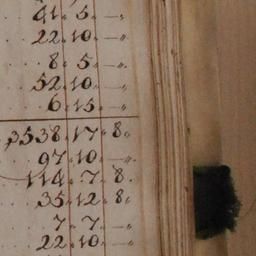 41. 5. —„
22. 10. —„
8. 5 —„
52. 10. —„
6. 15. —„
3538. 17. 8.
97. 10. —„
114. 7. 8.
35. 12. 8.
7. 7. —„
22. 10. —„